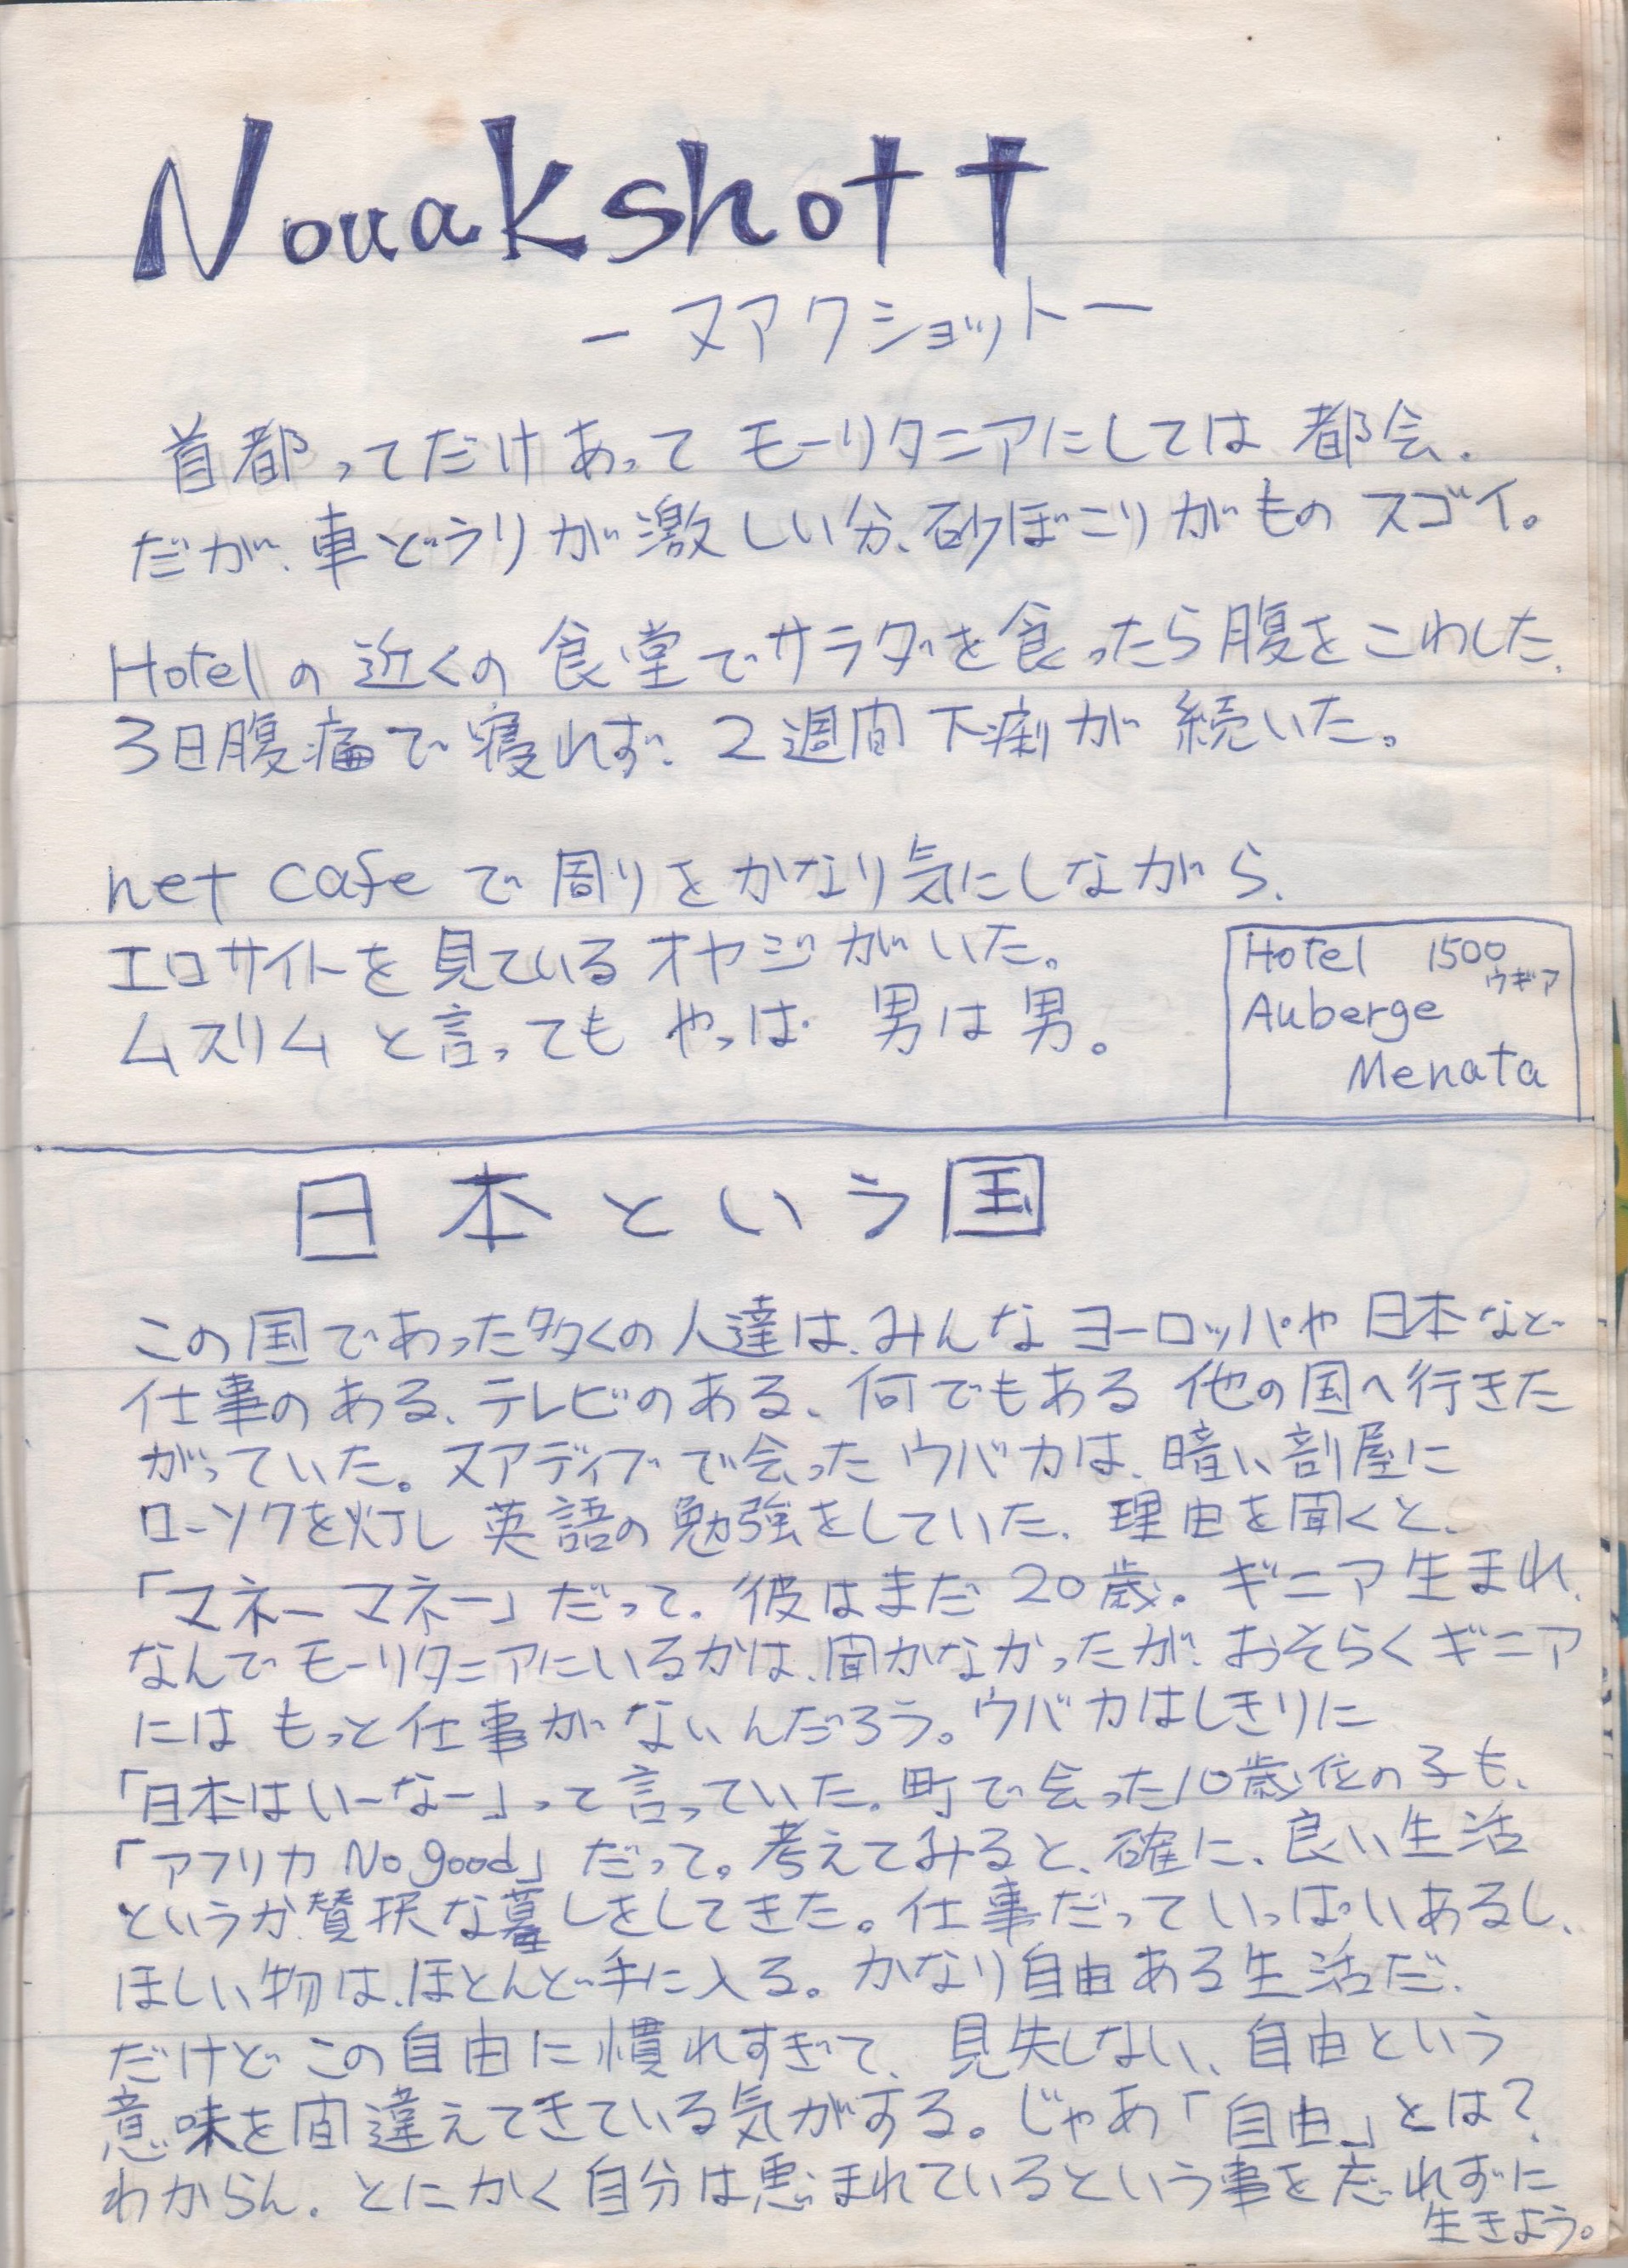 Nouakshott
－ヌアクショットー
首都ってだけあって モーリタニアにしては 都会.
だが、車どうりが激しい分、砂ぼこりがもの スゴイ。
Hotelの 近くの 食堂でサラダを食ったら腹をこわした.
3日腹痛で寝れず、2週間 下痢が 続いた。
net cafe で 周りをかなり気にしながら、
エロサイトを見ているオヤジがいた。
ムスリムと言っても やっぱ 男は男。
Hotel 1500
ウギア
Auberge
Menata
日本という国
この国であった多くの人達は、みんなヨーロッパや日本など
仕事のある、テレビのある、何でもある 他の国へ行きた
がっていた。ヌアディブで会ったウバカは、暗い部屋に
ローソクを灯し 英語の勉強をしていた、理由を聞くと、
「マネーマネー」だって。彼はまだ 20歳。ギニア生まれ、
なんでモーリタニアにいるかは、聞かなかったが、おそらくギニア
には もっと仕事がないんだろう。ウバカはしきりに
「日本はいーなー」って言っていた。町で会った10歳位の子も、
「アフリカ No good」だって。考えてみると、確に、良い生活
というか贅沢な暮しをしてきた。仕事だっていっぱいあるし、
ほしい物は、ほとんど手に入る。かなり自由ある生活だ.
だけどこの自由に慣れすぎて、見失しない、自由という
意味を間違えてきている気がする。じゃあ「自由」とは?
わからん. とにかく自分は恵まれているという事を忘れずに
生きよう。